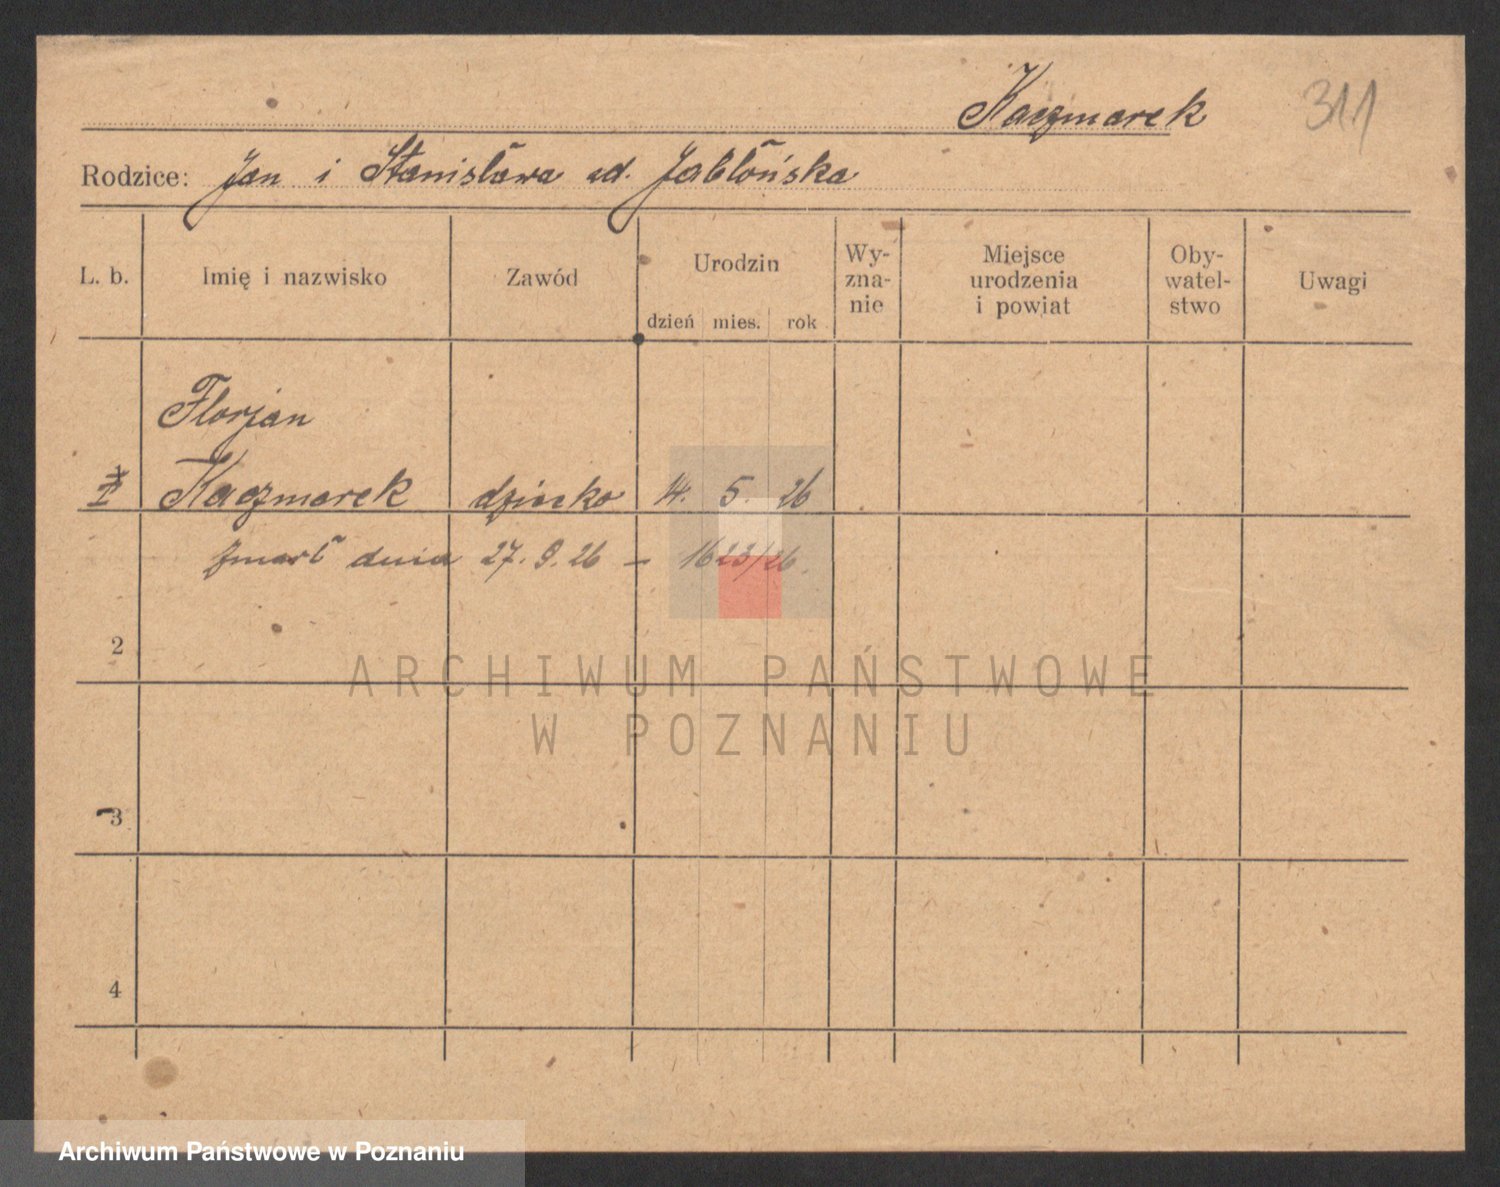 Kaczmarek 311
Rodzice: Jan i Stanisława ad. Jabłońska
L. b. Imię i nazwisko Zawód Urodzin dzień mies. rok Wy-
zna-
nie Miejsce
urodzenia
i powiat Oby-
watel-
stwo Uwagi
Florjan
1 Kaczmarek dziecko 14. 5. 26
zmarł dnia 27. 9. 26 – 1623/26.
2
3
4
ARCHIWUM PAŃSTWOWE
W POZNANIU
Archiwum Państwowe w Poznaniu